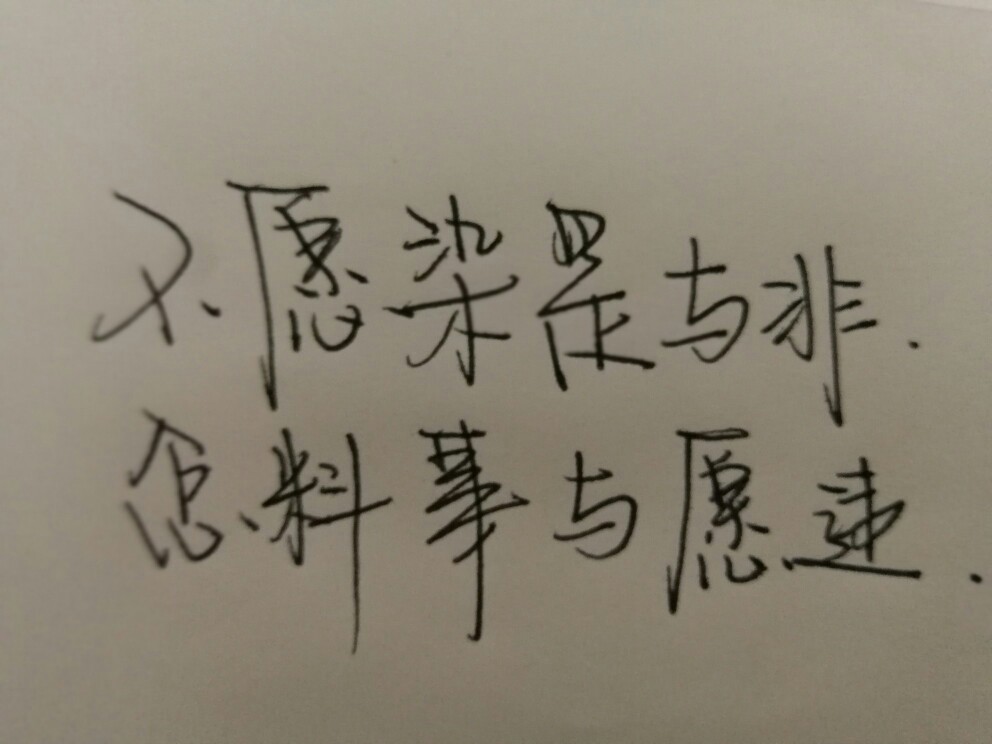 不愿染是与非.
怎料事与愿违.